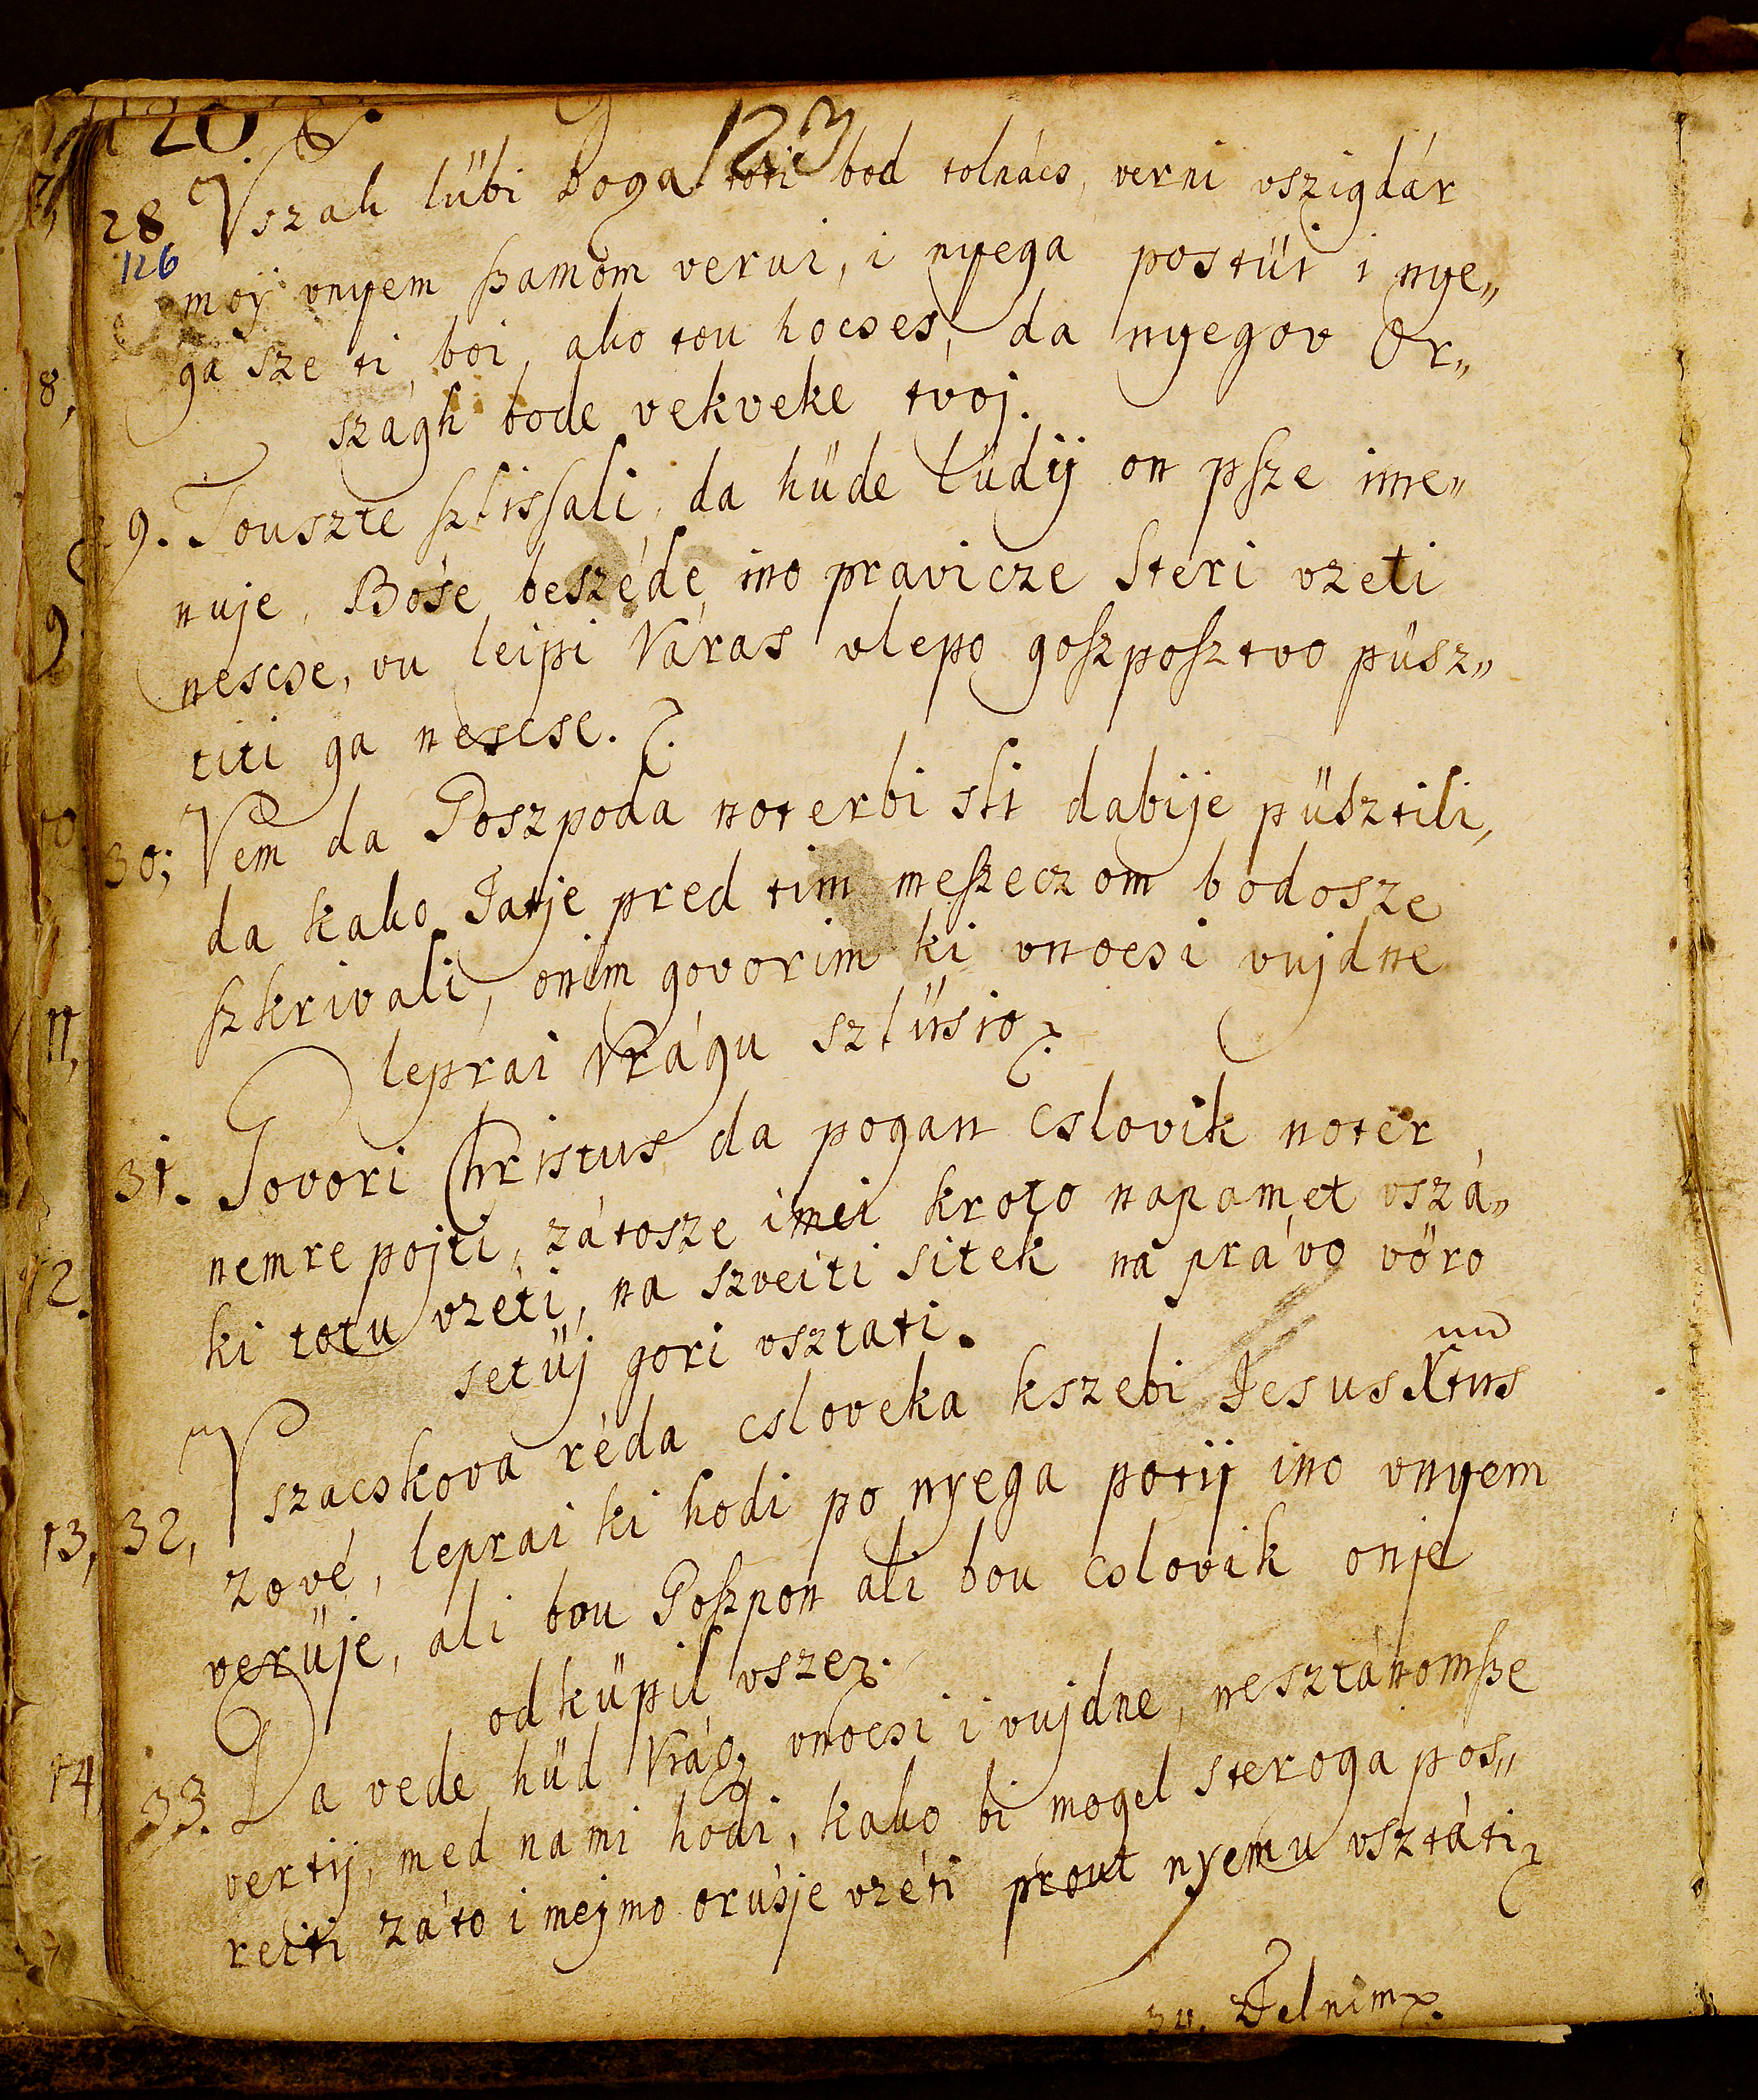 120
123
28 Vszak lübi Boga toti bod tolnács, verni vszigdár
126
moÿ vnyem szamom verui, i nyega postüi i nye„
ga sze ti boi, ako tou hocses, da nyegov Or„
szágh bode vekveke tvoj.
29. Touszte szlissali, da hüde lüdÿ on psze ime„
nuje, Bóse beszéde ino pravicze steri vzeti
nescse, vu leipi Váras vlepo goszposztvo püsz„
titi ga nescse.
30; Vem da Goszpoda noterbi sli dabije püsztili,
da kako Tatje pred tim meszeczom bodosze
szkrivali, onim govorim ki vnocsi vujdne
leprai Vrágu szlüsio
31. Govori Christus da pogan cslovik noter
nemre pojti, zátosze imei kroto napamet vszá„
ki totu vzéti, na szveiti sitek na právo vöro
setüj gori vsztati.
32, Vszacskova réda csloveka kszebi Jesus Xtus
zové, leprai ki hodi po nyega potÿ ino vnyem
verüje, ali bou Goszpon ali bou cslovik onje
odküpil vsze.
33. Da vede hüd Vrág vnocsi i vujdne, nesztánomsze
vertÿ, med nami hodi, kako bi mogel steroga pos„
reiti záto i mejmo orüsje vzéti prout nyemu vsztáti
34. Zselnim
8,
9
10
11,
12.
13,
14,